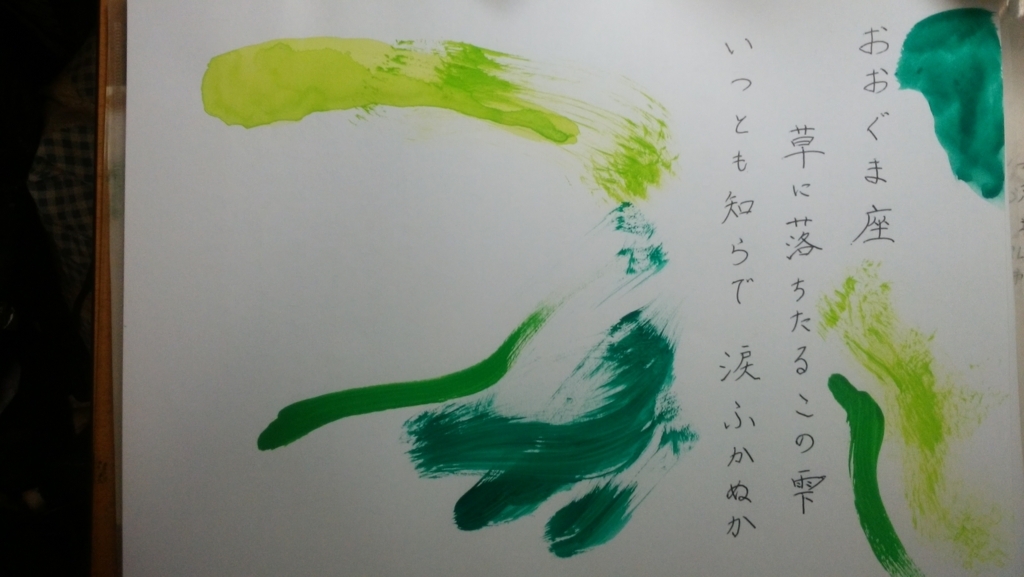 おおぐま座
草に落ちたるこの雫
いつとも知らで 涙ふかぬか